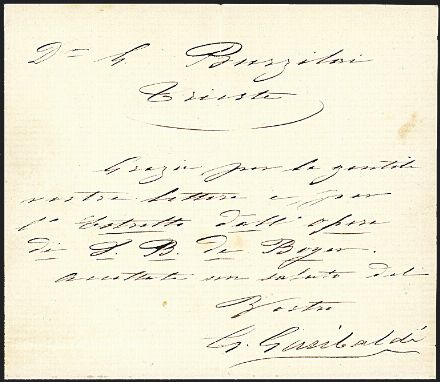 Dr G. Barzilai
Trieste
Grazie per la gentile
vostra lettera e per
l' Estratto dall' opera
di S. B. de Boyer.
Accettate un saluto dal
Vostro
G. Garibaldi